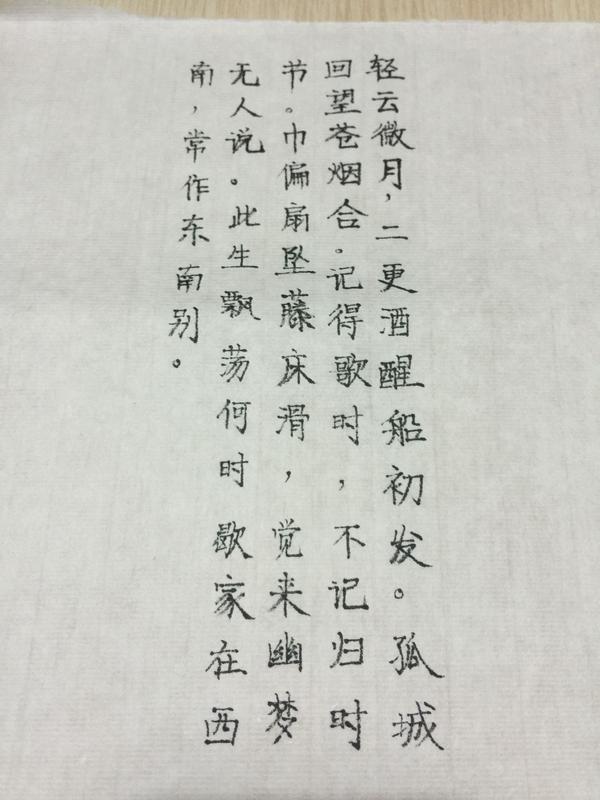 轻云微月，二更酒醒船初发。孤城
回望苍烟合。记得歌时，不记归时
节。巾偏扇坠藤床滑，觉来幽梦
无人说。此生飘荡何时歇家在西
南，常作东南别。